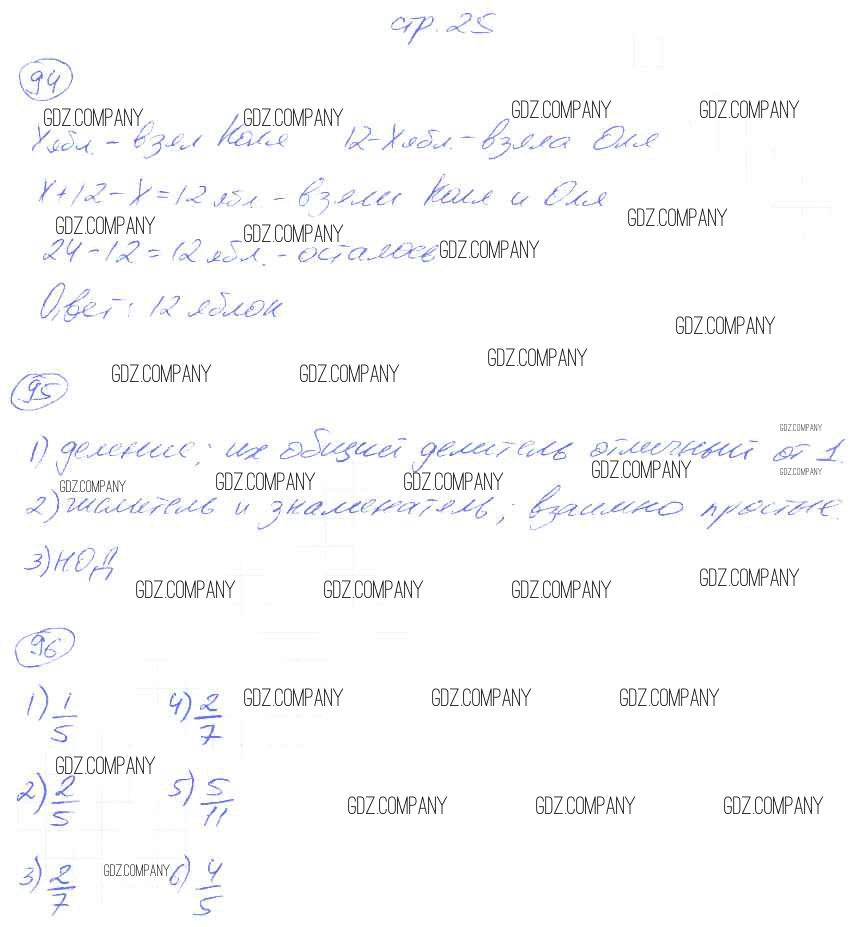 стр. 25
94
GDZ.COMPANY GDZ.COMPANY GDZ.COMPANY GDZ.COMPANY
X ябл. - взял Коля 12-X ябл. - взяла Оля
X+12-X=12 ябл. - взяли Коля и Оля
GDZ.COMPANY GDZ.COMPANY GDZ.COMPANY GDZ.COMPANY
24-12=12 ябл. - осталось
Ответ: 12 яблок
GDZ.COMPANY
GDZ.COMPANY GDZ.COMPANY GDZ.COMPANY
95
GDZ.COMPANY
1) деление; их общий делитель отличный от 1.
GDZ.COMPANY GDZ.COMPANY GDZ.COMPANY GDZ.COMPANY GDZ.COMPANY
2) числитель и знаменатель; взаимно простые.
3) НОД
GDZ.COMPANY GDZ.COMPANY GDZ.COMPANY GDZ.COMPANY
96
1) 1/5 4) 2/7 GDZ.COMPANY GDZ.COMPANY GDZ.COMPANY
GDZ.COMPANY
2) 2/5 5) 5/11 GDZ.COMPANY GDZ.COMPANY GDZ.COMPANY
3) 2/7 GDZ.COMPANY 6) 4/5